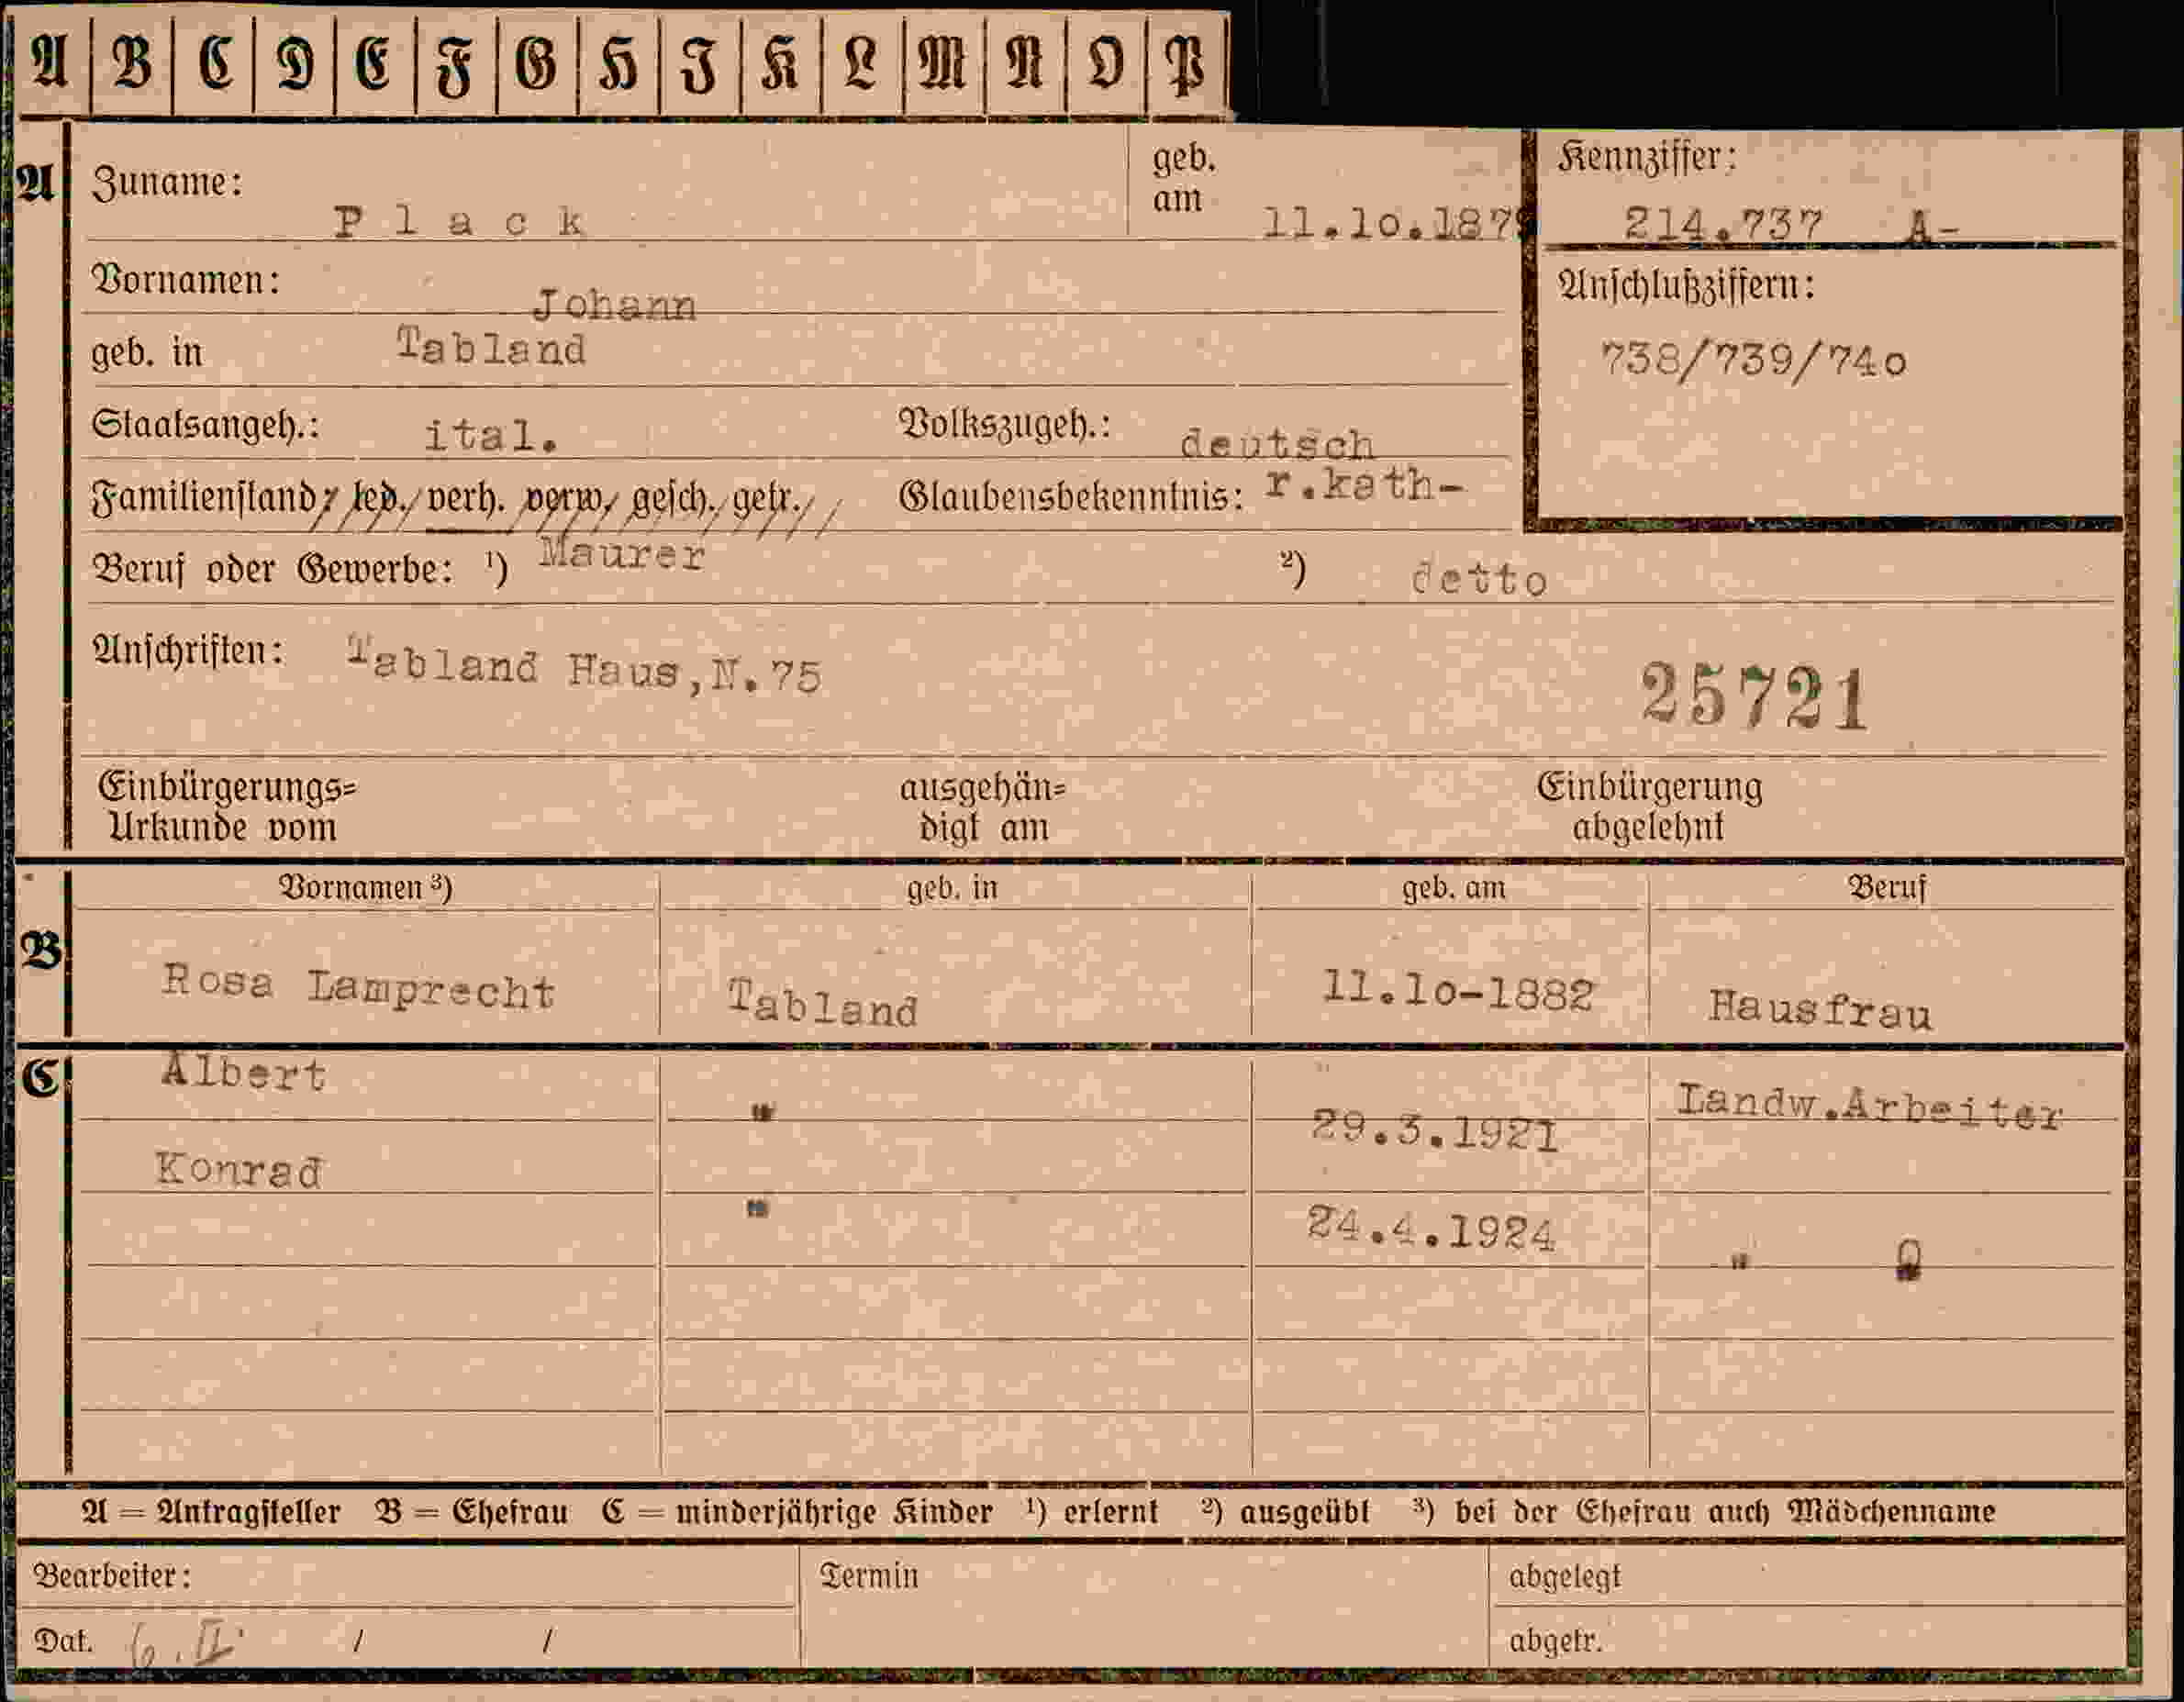 A B C D E F G H I K L M N O P
A Zuname: Plack geb. am 11.10.1879 Kennziffer: 214.737 A-
Vornamen: Johann Anschlußziffern:
geb. in Tabland 738/739/740
Staatsangeh.: ital. Volkszugeh.: deutsch
Familienstand: led./verh. verw./gesch./getr./ Glaubensbekenntnis: r.kath-
Beruf oder Gewerbe: ¹) Maurer ²) detto
Anschriften: Tabland Haus,N.75 25721
Einbürgerungs= ausgehän= Einbürgerung
Urkunde vom digt am abgelehnt
Vornamen ³) geb. in geb. am Beruf
B Rosa Lamprecht Tabland 11.10-1882 Hausfrau
C Albert " 29.3.1921 Landw.Arbeiter
Konrad " 24.4.1924 "
A = Antragsteller B = Ehefrau C = minderjährige Kinder ¹) erlernt ²) ausgeübt ³) bei der Ehefrau auch Mädchenname
Bearbeiter: Termin abgelegt
Dat. 6. II. / / abgetr.